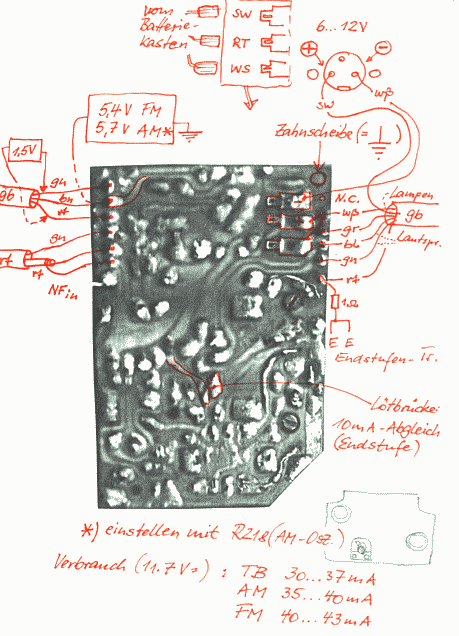 vom
Batterie-
kasten
SW
RT
WS
6...12V
+
-
SW
wß
5,4V FM
5,7V AM*
Zahnscheibe (= )
1,5V
gn
gb
bn
rt
gn
rt
rt
NF in
N.C.
wß
gr
bl
gn
rt
Lampen
gb
Lautspr.
1Ω
E E
Endstufen-Tr.
Lötbrücke:
10mA-Abgleich
(Endstufe)
*) einstellen mit R218 (AM-Osz.)
Verbrauch (11.7V=) : TB 30...37mA
AM 35...40mA
FM 40...43mA